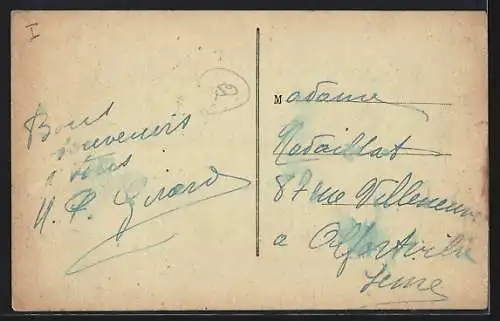 I
Bons
souvenirs
à tous
Girard
Madame
Nadaillat
87 rue Villeneuve
a Alfortville
Seine